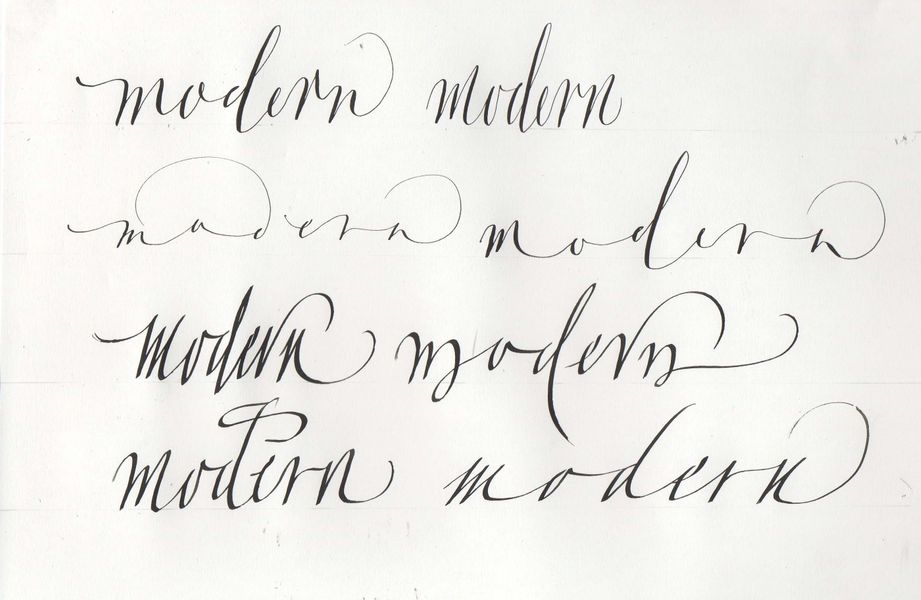 modern modern
modern modern
modern modern
modern modern